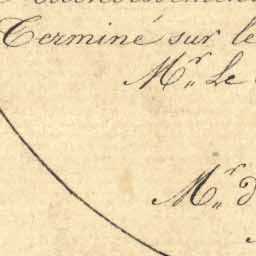 Terminé sur le
Mr. Le
Mr. d